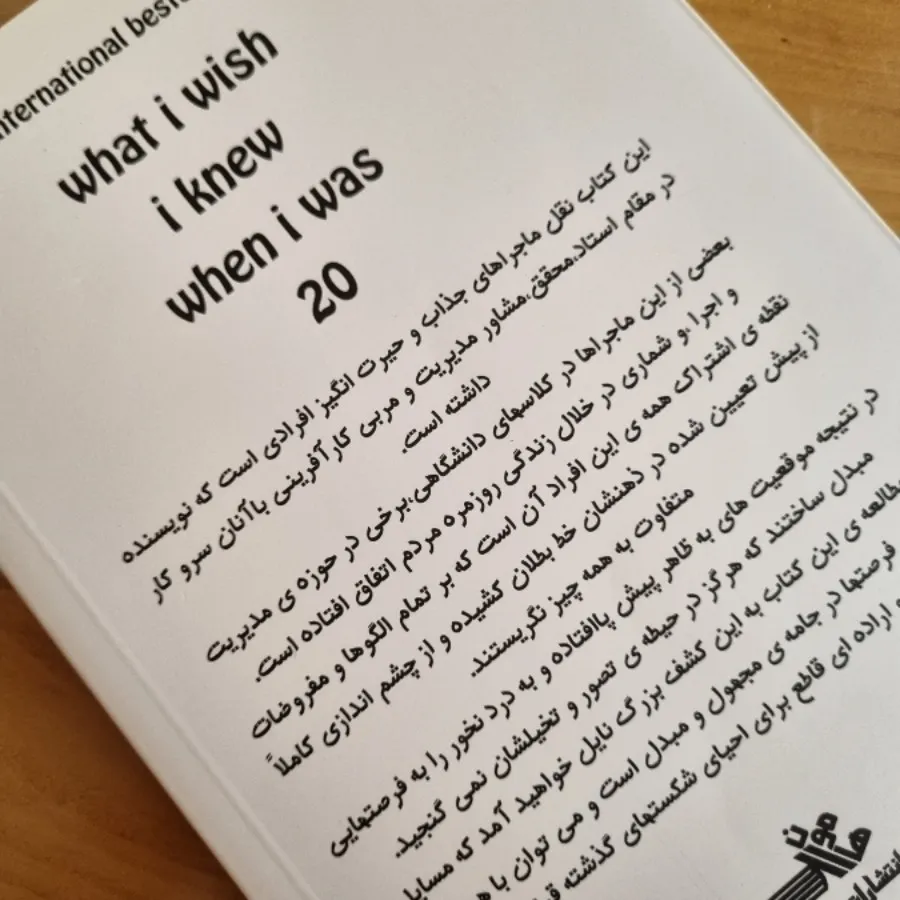 international
what i wish
i knew
when i was
20
این کتاب نقل ماجراهای جذاب و حیرت انگیز افرادی است که نویسنده
در مقام استاد،محقق،مشاور مدیریت و مربی کارآفرینی باآنان سرو کار
داشته است.
بعضی از این ماجراها در کلاسهای دانشگاهی،برخی در حوزه ی مدیریت
و اجرا ،و شماری در خلال زندگی روزمره مردم اتفاق افتاده است.
نقطه ی اشتراک همه ی این افراد آن است که بر تمام الگوها و مفروضات
از پیش تعیین شده در ذهنشان خط بطلان کشیده و از چشم اندازی کاملاً
متفاوت به همه چیز نگریستند.
در نتیجه موقعیت های به ظاهر پیش پاافتاده و به درد نخور را به فرصتهایی
مبدل ساختند که هرگز در حیطه ی تصور و تخیلشان نمی گنجید.
ی این کتاب به این کشف بزرگ نایل خواهید آمد که
فرصتها در جامه ی مجهول و مبدل است و می توان با
اراده ای قاطع برای احیای شکستهای گذشته
هامون